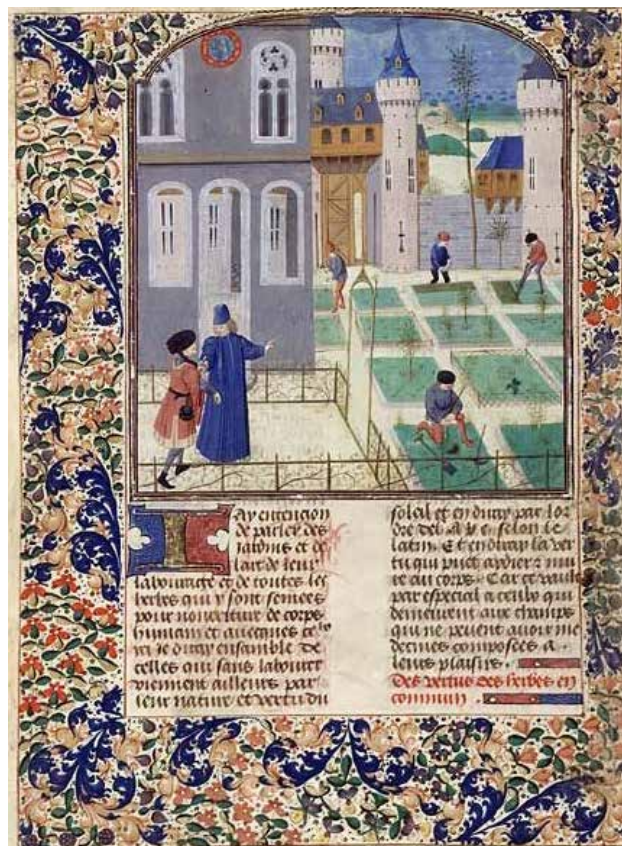 Jay entencion
de parler des
jardins et de
lart de leur
labourage et de toutes les
herbes qui y sont semees
pour nourriture de corps
humain et avecques ce
je diray ensemble de
celles qui sans labourer
viennent ailleurs par
leur nature et vertu du
soleil et en diray par lor
dre del a b c selon le
latin. Et en diray la ver
tu qui puet aydier z nui
re au corps. Car ce vault
par especial a ceulx qui
demeurent aux champs
qui ne peuent avoir me
decines composees a
leurs plaisirs.
Des vertus des herbes en
commun.